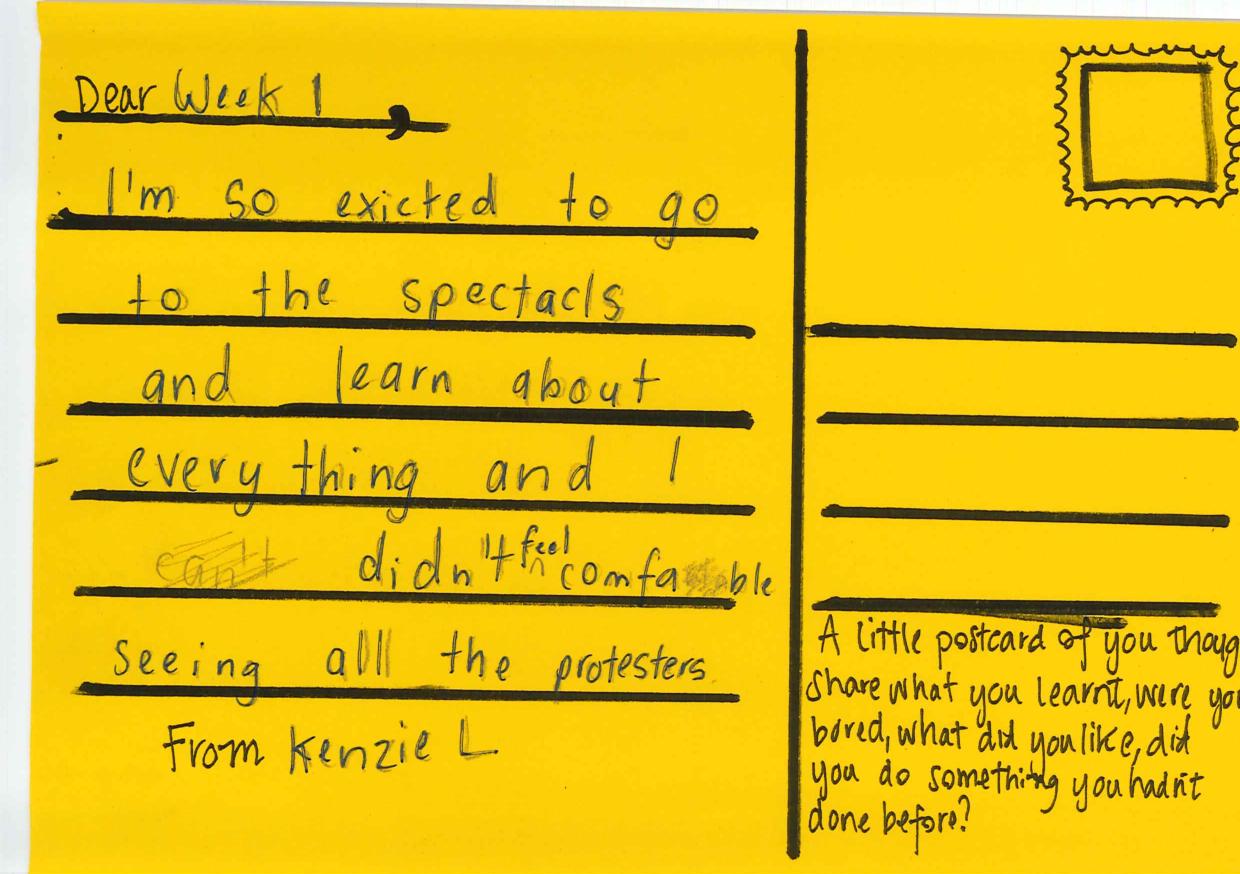 Dear Week 1,
I'm so exicted to go
to the spectacls
and learn about
everything and I
can't didn't feel comfa ble
seeing all the protesters
From Kenzie L
A little postcard of you thoug
share what you learnt, were you
bored, what did you like, did
you do something you hadn't
done before?